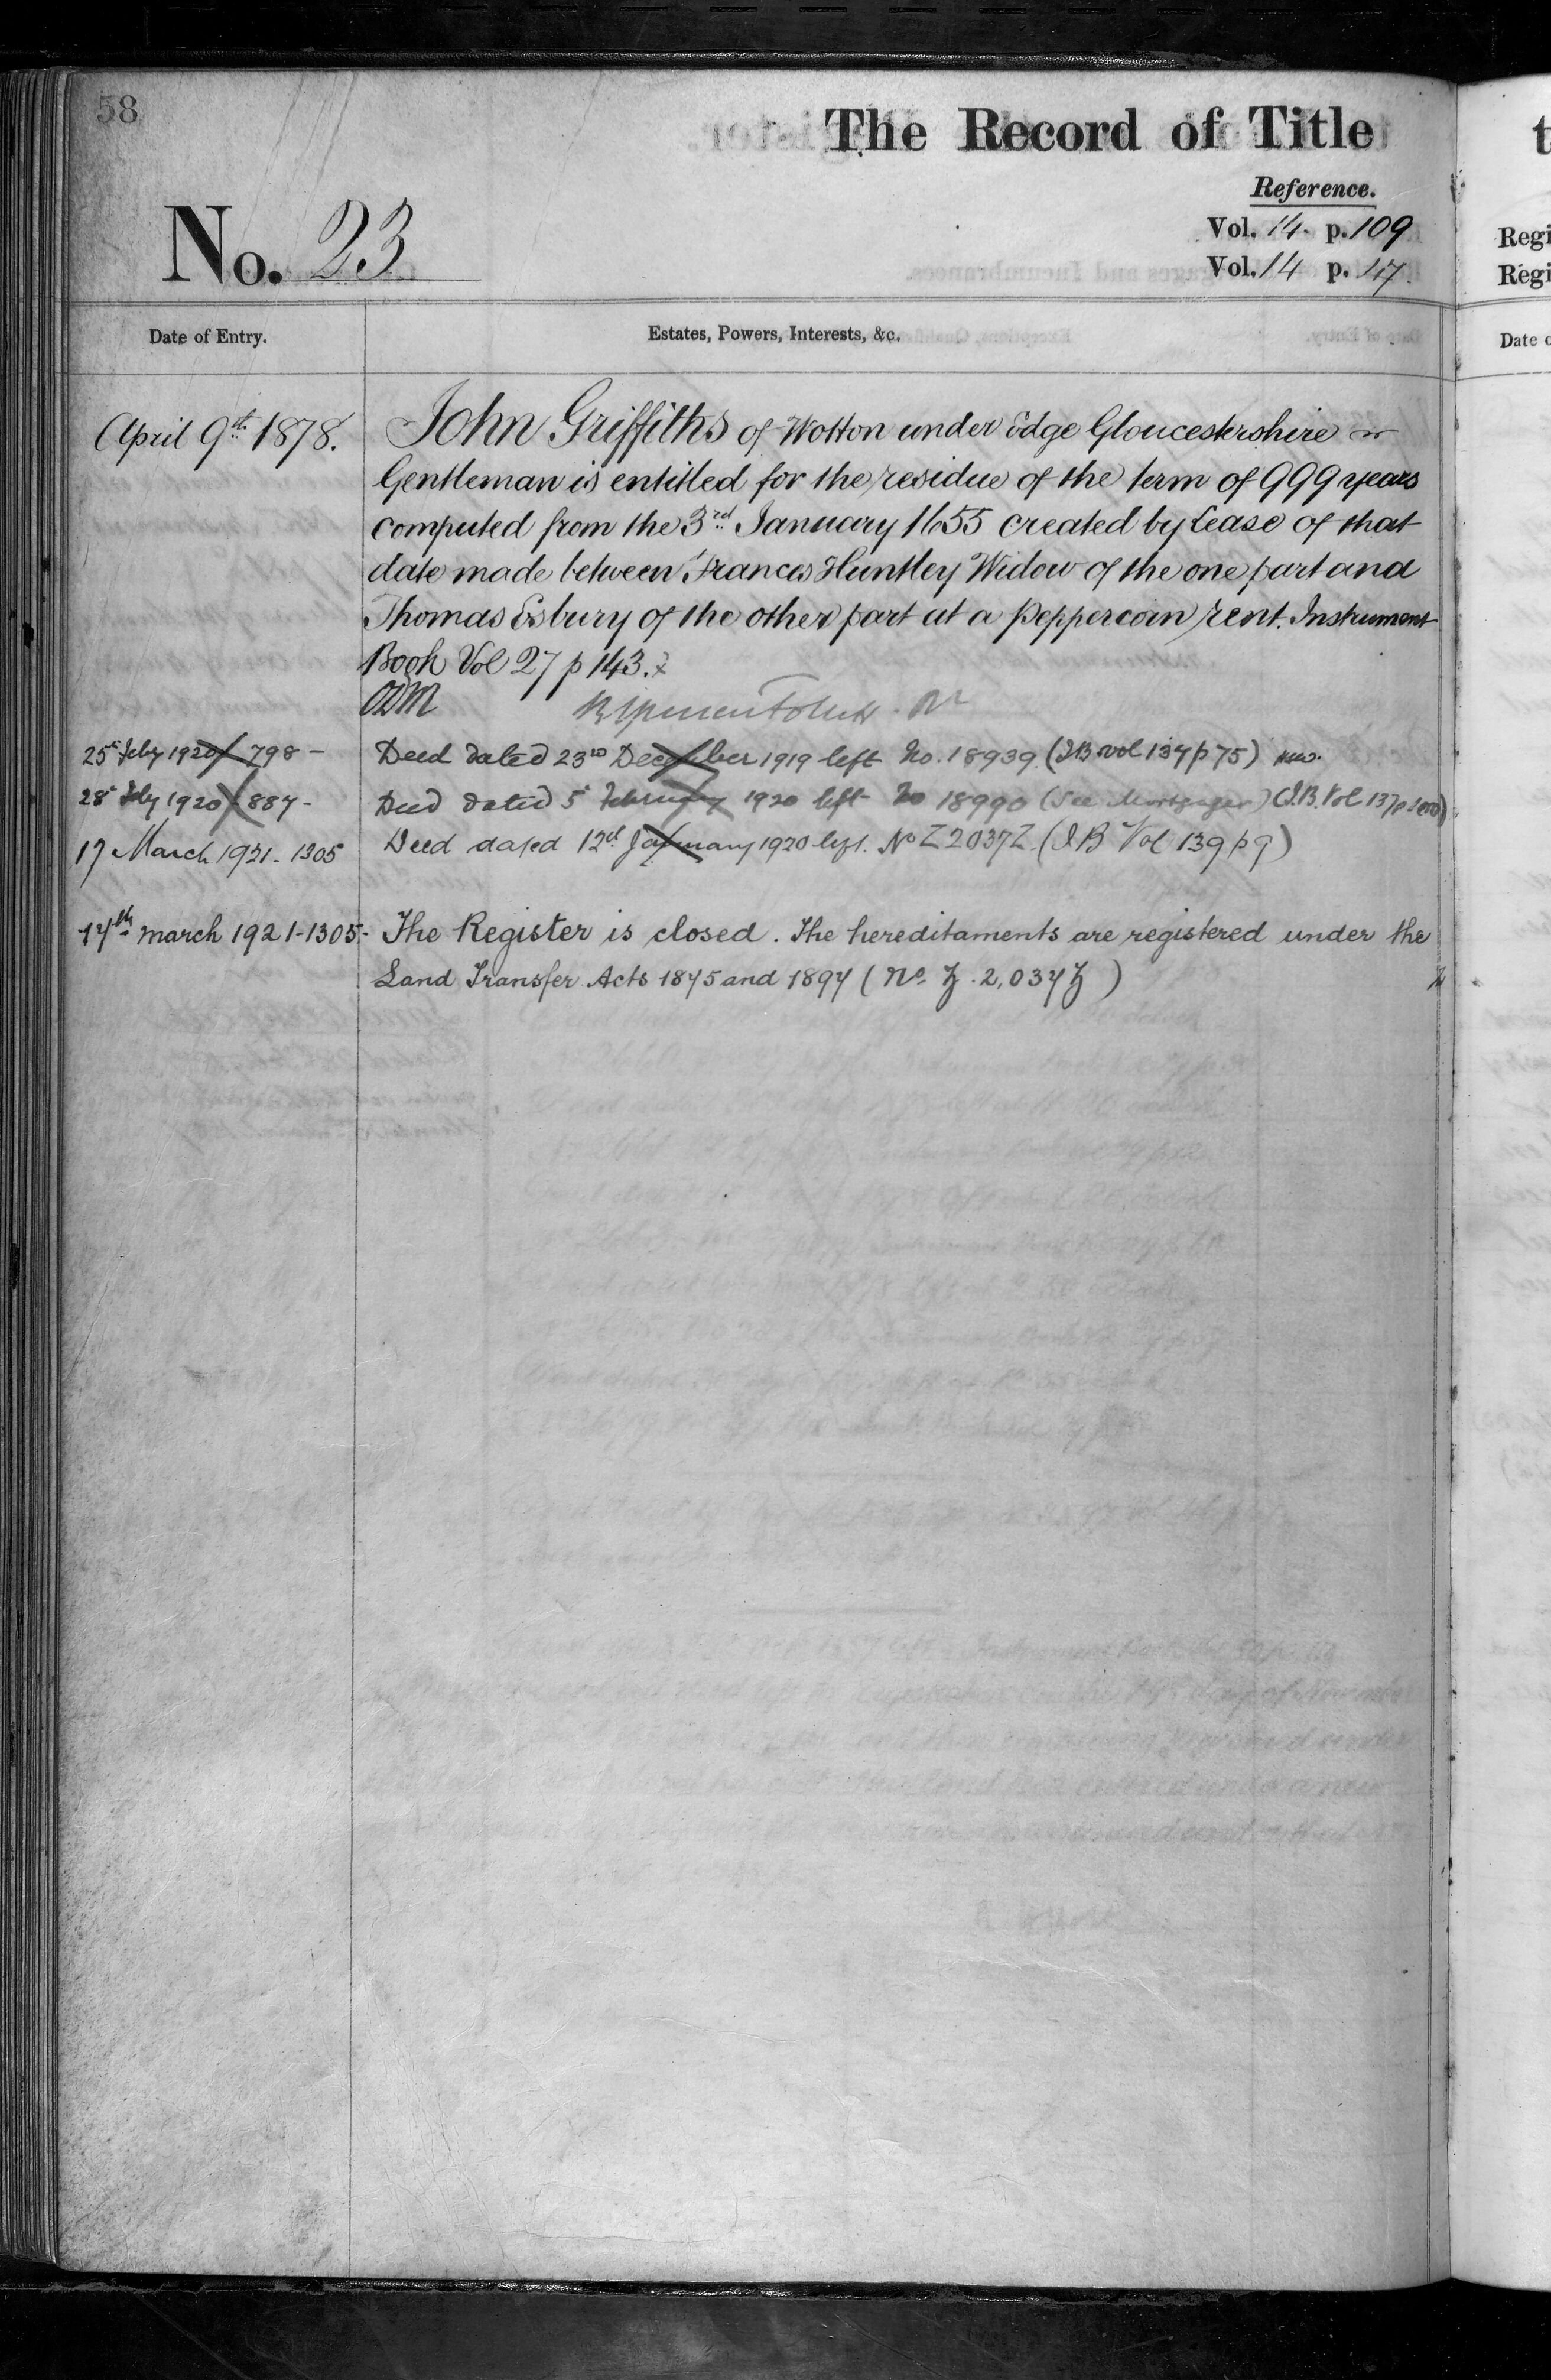 58
The Record of Title
Reference.
No. 23
Vol. 14. p. 109
Vol. 14 p. 117
Date of Entry.
Estates, Powers, Interests, &c.
April 9th 1878.
John Griffiths of Wotton under Edge Gloucestershire
Gentleman is entitled for the residue of the term of 999 years
computed from the 3rd January 1655 created by Lease of that
date made between Frances Huntley Widow of the one part and
Thomas Esbury of the other part at a Peppercorn rent. Instrument
Book Vol 27 p 143.
25 Feby 1920 798 -
Deed dated 23rd December 1919 left No. 18939 (I.B. vol 137 p 75)
28 Feby 1920 887 -
Deed dated 5 February 1920 left No 18990 (See Mortgages) (I.B. Vol 137 p 100)
17 March 1921 - 1305
Deed dated 12th January 1920 left. No Z2037Z. (I B Vol 139 p 9)
17th March 1921 - 1305 -
The Register is closed. The hereditaments are registered under the
Land Transfer Acts 1875 and 1897 (No. Z. 2,037 Z)
t
Regi
Regi
Date o